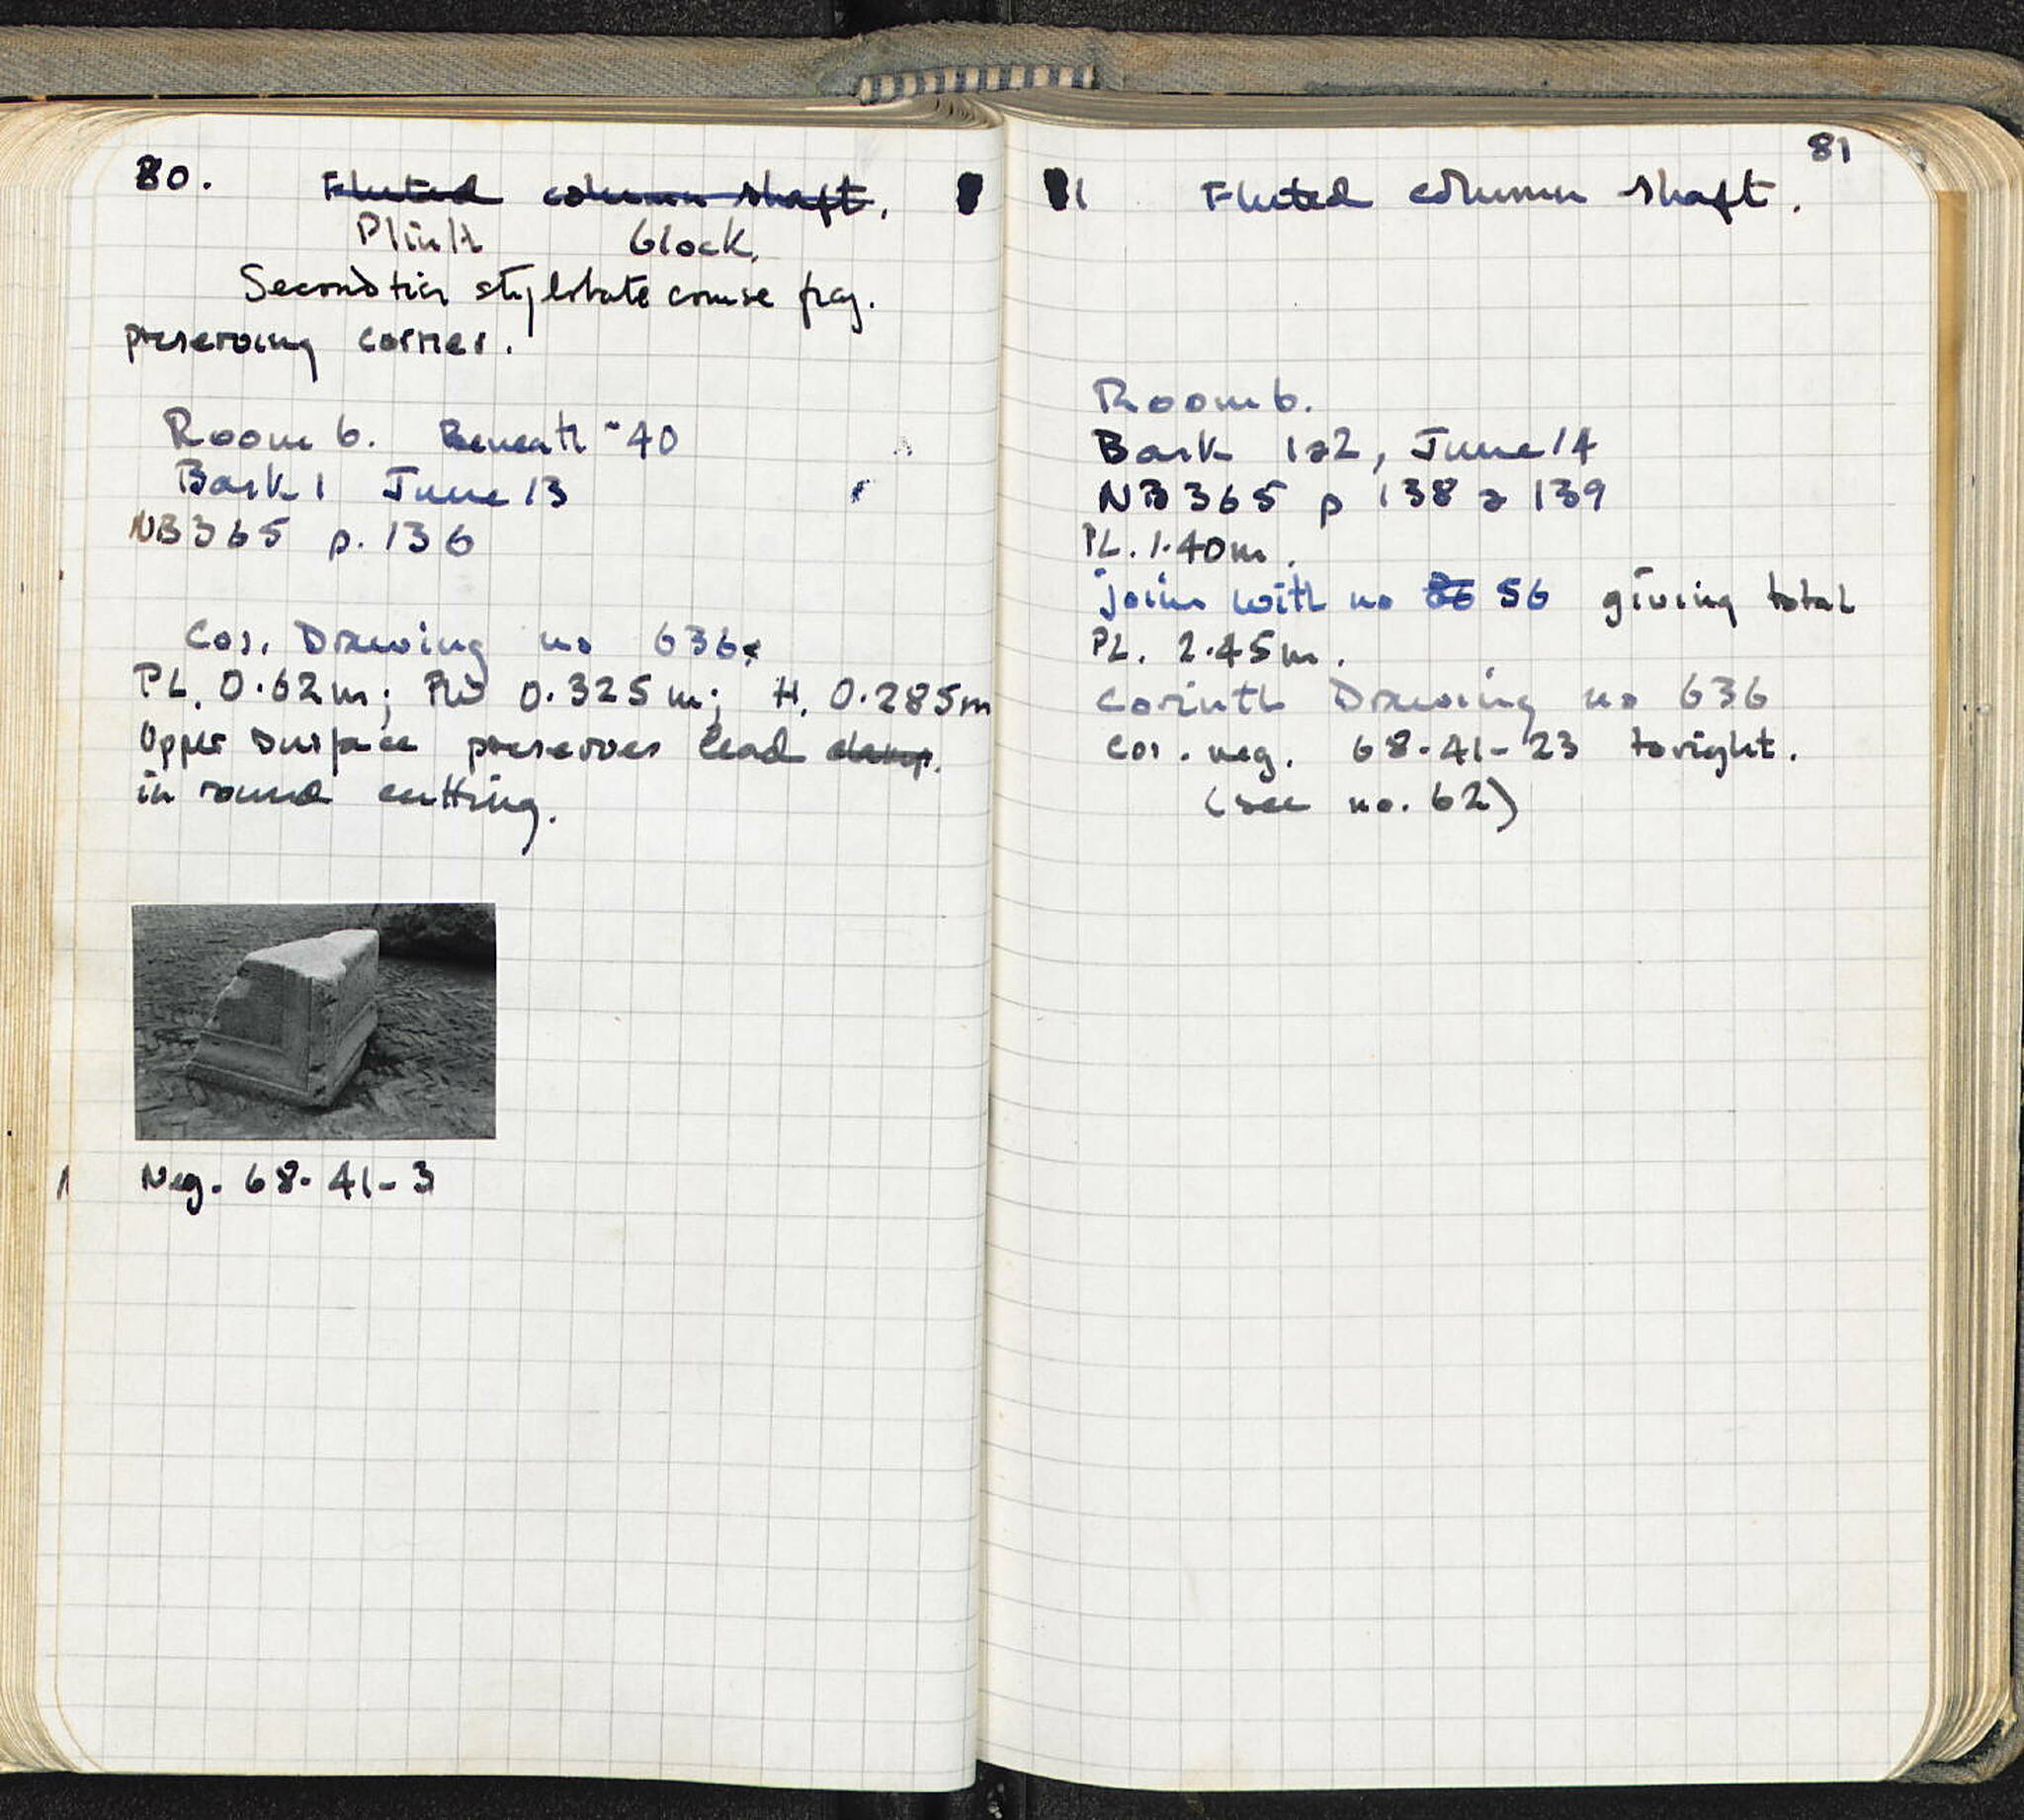 80. Fluted column shaft.
Plinth block.
Second tier stylobate course frag.
preserving corner.
Room 6. Beneath 40
Bask 1 June 13
NB365 p. 136
Cor. Drawing no 636
PL. 0.62m; PW 0.325m; H. 0.285m
Upper surface preserves lead clamp.
in round cutting.
Neg. 68-41-3
81
81 Fluted column shaft.
Room 6.
Bask 1 & 2, June 14
NB 365 p 138 & 139
PL. 1.40m.
joins with no 56 giving total
PL. 2.45m.
Corinth Drawing no 636
Cor. neg. 68-41-23 to right.
(see no. 62)